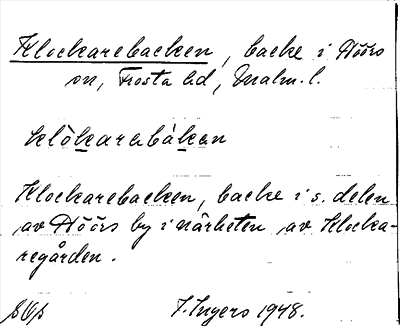 Klockarebacken, backe i Höörs
sn, Frosta hd, Malm. l.
klòkarabàkan
Klockarebacken, backe i s. delen
av Höörs by i närheten av Klocka-
regården.
J. Ingers 1948.